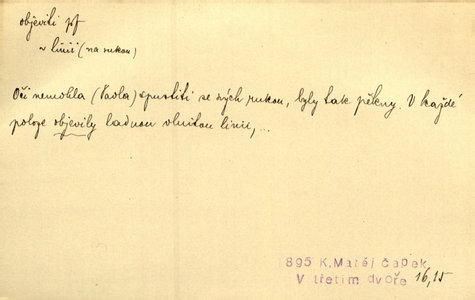 objeviti pf
~ linii (na rukou)
Oči nemohla (Pavla) spustiti se svých rukou, byly tak pěkny. V každé
poloze objevily ladnou vlnitou linii, ...
895 K. Matěj Čapek
V třetím dvoře 16,15